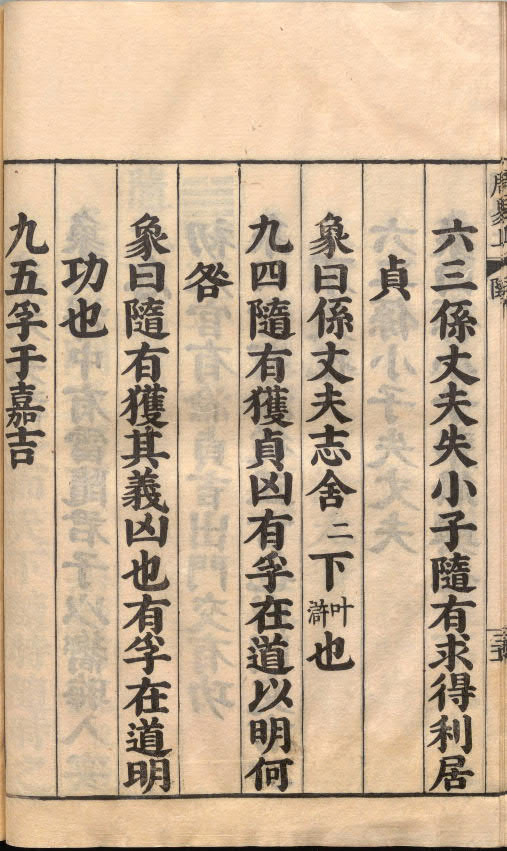 六三係丈夫失小子隨有求得利居
貞
象曰係丈夫志舍二下叶滸也
九四隨有獲貞凶有孚在道以明何
咎
象曰隨有獲其義凶也有孚在道明
功也
九五孚于嘉吉